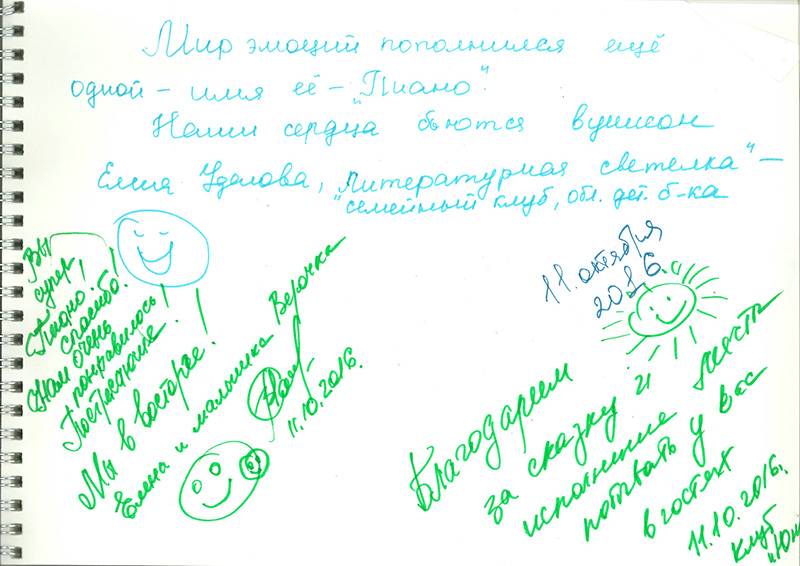 Мир эмоций пополнился ещё
одной – имя её – „Пиано".
Наши сердца бьются вунисон
Елена Уделова, „Литературная светелка" –
семейный клуб, обл. дет. б-ка
11. октября
2016
Вы
супер!
Пиано
спасибо!
Нам очень
понравилось!
Потрясающе!
Мы в восторге!
Елена и малышка Верочка
11.10.2016.
Благодарим
за сказку и
исполнение
побывать у вас
в гостях
11.10.2016г.
клуб